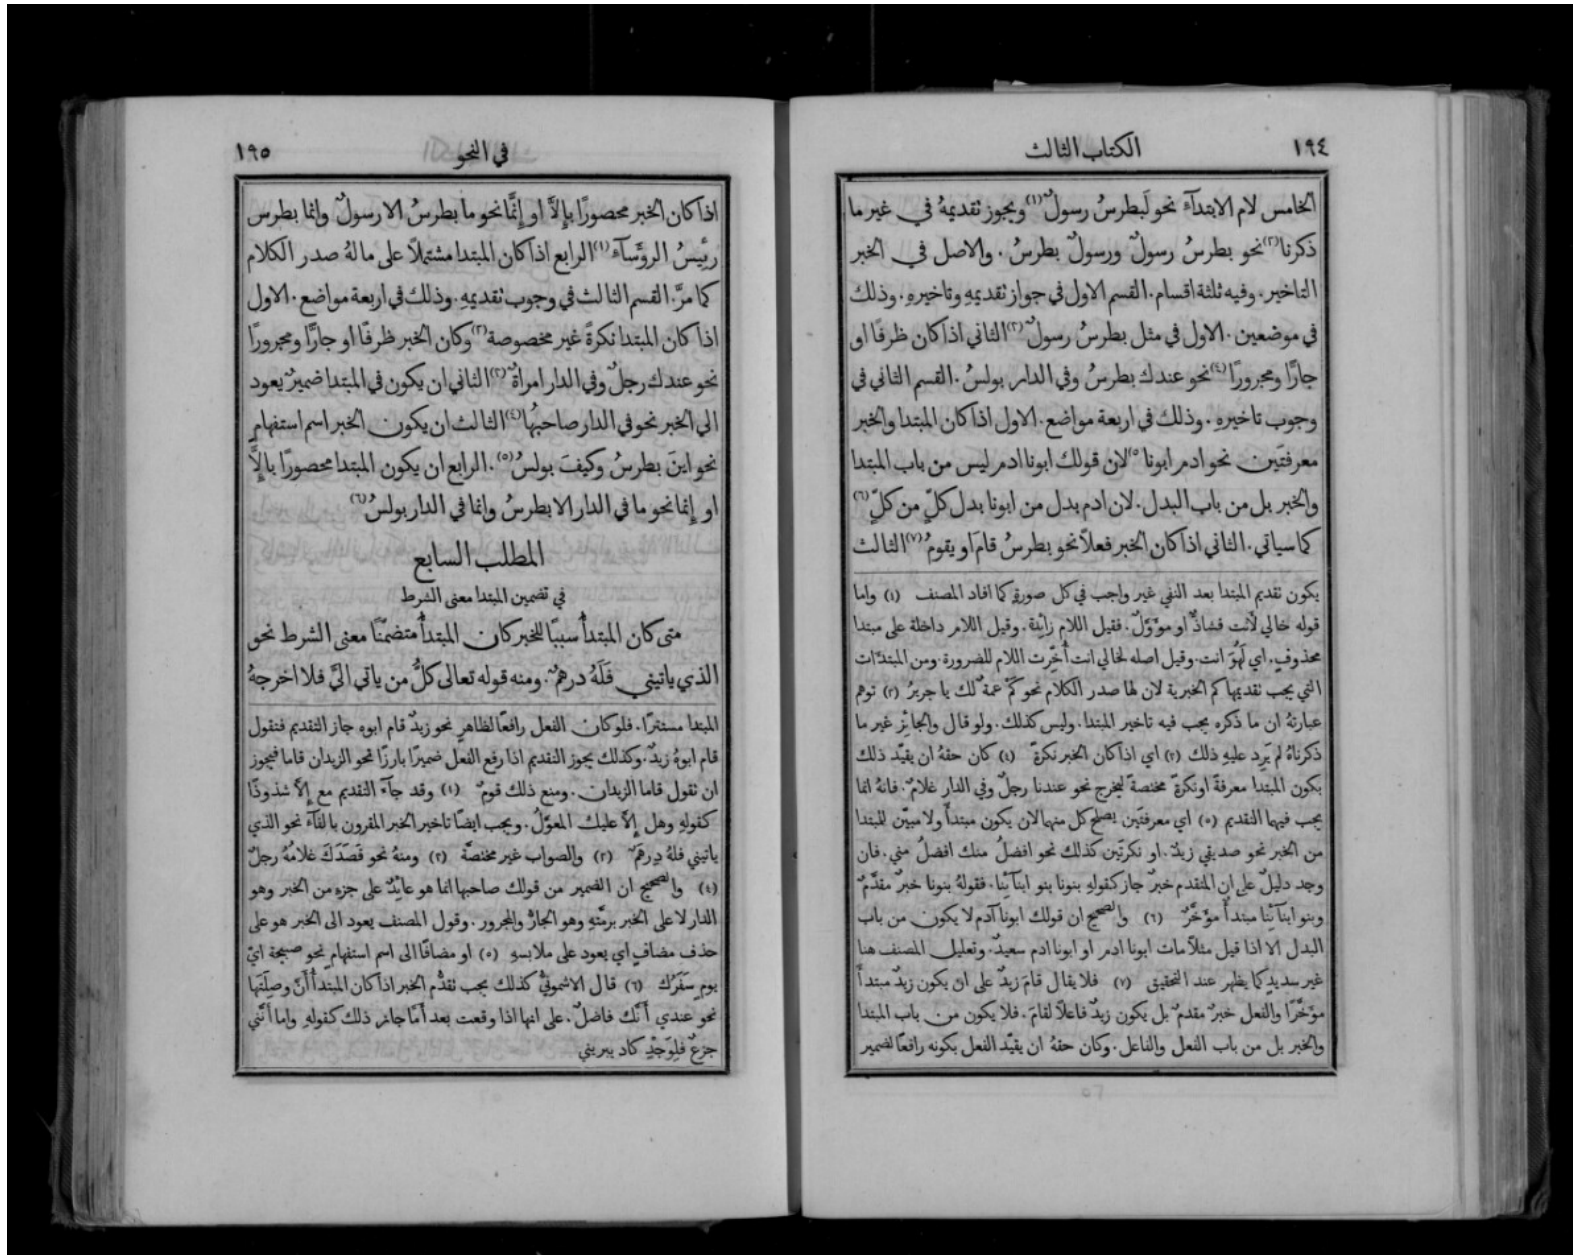 ١٩٤
الكتاب الثالث
الخامس لام الابتدآء نحو لَبطرسُ رسولٌ (١) ويجوز تقديمهُ في غير ما
ذكرنا (٢) نحو بطرسُ رسولٌ ورسولٌ بطرسُ . والاصل في الخبر
التاخير . وفيه ثلثة اقسام . القسم الاول في جواز تقديمهِ وتاخيرهِ . وذلك
في موضعين . الاول في مثل بطرسُ رسولٌ (٣) الثاني اذا كان ظرفًا او
جارًّا ومجرورًا (٤) نحو عندك بطرسُ وفي الدار بولسُ . القسم الثاني في
وجوب تاخيرهِ . وذلك في اربعة مواضع . الاول اذا كان المبتدا والخبر
معرفتَين نحو ادم ابونا (٥) لان قولك ابونا ادم ليس من باب المبتدا
والخبر بل من باب البدل . لان ادم بدل من ابونا بدل كلٍّ من كلٍّ (٦)
كما سياتي . الثاني اذا كان الخبر فعلاً نحو بطرسُ قامَ او يقومُ (٧) الثالث
يكون تقديم المبتدا بعد النفي غير واجب في كل صورةٍ كما افاد المصنف (١) واما
قوله خالي لَأَنت فشاذٌّ او موَّوَّلٌ . فقيل اللام زائِدة . وقيل اللام داخلة على مبتدا
محذوفٍ . اي لَهُوَ انت . وقيل اصله لخالي انت أُخِّرت اللام للضرورة . ومن المبتدَآت
التي يجب تقديمها كم الخبرية لان لها صدر الكلام نحو كَمْ عمةٌ لك يا جريرُ (٢) توهم
عبارتهُ ان ما ذكره يجب فيه تاخير المبتدا . وليس كذلك . ولو قال والجائِز غير ما
ذكرناهُ لم يَرِد عليهِ ذلك (٣) اي اذا كان الخبر نكرةً (٤) كان حقهُ ان يقيّد ذلك
بكون المبتدا معرفةً او نكرةً مختصةً ليخرج نحو عندنا رجلٌ وفي الدار غلامٌ . فانهُ انما
يجب فيهما التقديم (٥) اي معرفتَين يصلح كل منهما لان يكون مبتدأً ولا مبيّن للمبتدا
من الخبر نحو صديقي زيدٌ . او نكرتَين كذلك نحو افضلُ منك افضلُ مني . فان
وجد دليلٌ على ان المتقدم خبرٌ جاز كقولهِ بنونا بنو ابنآئِنا . فقولهُ بنونا خبرٌ مقدَّمٌ
وبنو ابنآئِنا مبتدأٌ موَّخَّرٌ (٦) والصحيح ان قولك ابونا آدم لا يكون من باب
البدل الا اذا قيل مثلاً مات ابونا ادم او ابونا ادم سعيدٌ . وتعليل المصنف هنا
غير سديدٍ كما يظهر عند التحقيق (٧) فلا يقال قامَ زيدٌ على ان يكون زيدٌ مبتدأً
موَّخَّرًا والفعل خبرٌ مقدمٌ بل يكون زيدٌ فاعلاً لقامَ . فلا يكون من باب المبتدا
والخبر بل من باب الفعل والفاعل . وكان حقهُ ان يقيّد الفعل بكونه رافعًا لضمير
في النحو
١٩٥
اذا كان الخبر محصورًا بإِلاَّ او إِنَّما نحو ما بطرسُ الا رسولٌ وانما بطرس
رئِيسُ الروَّسآء (١) الرابع اذا كان المبتدا مشتملاً على ما لهُ صدر الكلام
كما مرَّ . القسم الثالث في وجوب تقديمهِ . وذلك في اربعة مواضع . الاول
اذا كان المبتدا نكرةً غير مخصوصة (٢) وكان الخبر ظرفًا او جارًّا ومجرورًا
نحو عندك رجلٌ وفي الدار امراةٌ (٣) الثاني ان يكون في المبتدا ضميرٌ يعود
الى الخبر نحو في الدار صاحبهُا (٤) الثالث ان يكون الخبر اسم استفهامٍ
نحو اينَ بطرسُ وكيفَ بولسُ (٥) . الرابع ان يكون المبتدا محصورًا بالإَّ
او إِنما نحو ما في الدار الا بطرسُ وانما في الدار بولسُ (٦)
المطلب السابع
في تضمين المبتدا معنى الشرط
متى كان المبتدأُ سببًا للخبر كان المبتدأُ متضمّنًا معنى الشرط نحو
الذي ياتيني فَلَهُ درهمٌ . ومنه قوله تعالى كلُّ من ياتي اليَّ فلا اخرجهُ
المبتدا مستترًا . فلو كان الفعل رافعًا لظاهرٍ نحو زيدٌ قام ابوه جاز التقديم فتقول
قام ابوهُ زيدٌ . وكذلك يجوز التقديم اذا رفع الفعل ضميرًا بارزًا نحو الزيدان قاما فيجوز
ان تقول قاما الزيدان . ومنع ذلك قومٌ (١) وقد جآء التقديم مع إِلاَّ شذوذًا
كقولهِ وهل إِلاَّ عليك المعوَّلُ . ويجب ايضًا تاخير الخبر المقرون بالفآء نحو الذي
ياتيني فلهُ درهَمٌ (٢) والصواب غير مختصَّة (٣) ومنهُ نحو قَصَدَكَ غلامُهُ رجلٌ
(٤) والصحيح ان الضمير من قولك صاحبها انما هو عايدٌ على جزءٍ من الخبر وهو
الدار لا على الخبر برمَّتهِ وهو الجارُّ والمجرور . وقول المصنف يعود الى الخبر هو على
حذف مضافٍ اي يعود على ملابسهِ (٥) او مضافًا الى اسم استفهامٍ نحو صبيحة ايّ
يومٍ سَفَرُك (٦) قال الاشمونيُّ كذلك يجب تقدُّم الخبر اذا كان المبتدأُ أَنَّ وصِلَتَها
نحو عندي أَنَّك فاضلٌ . على انها اذا وقعت بعد أَمَّا جاز ذلك كقولهِ واما أَنَّني
جزعٌ فلِوَجْدٍ كاد يبريني